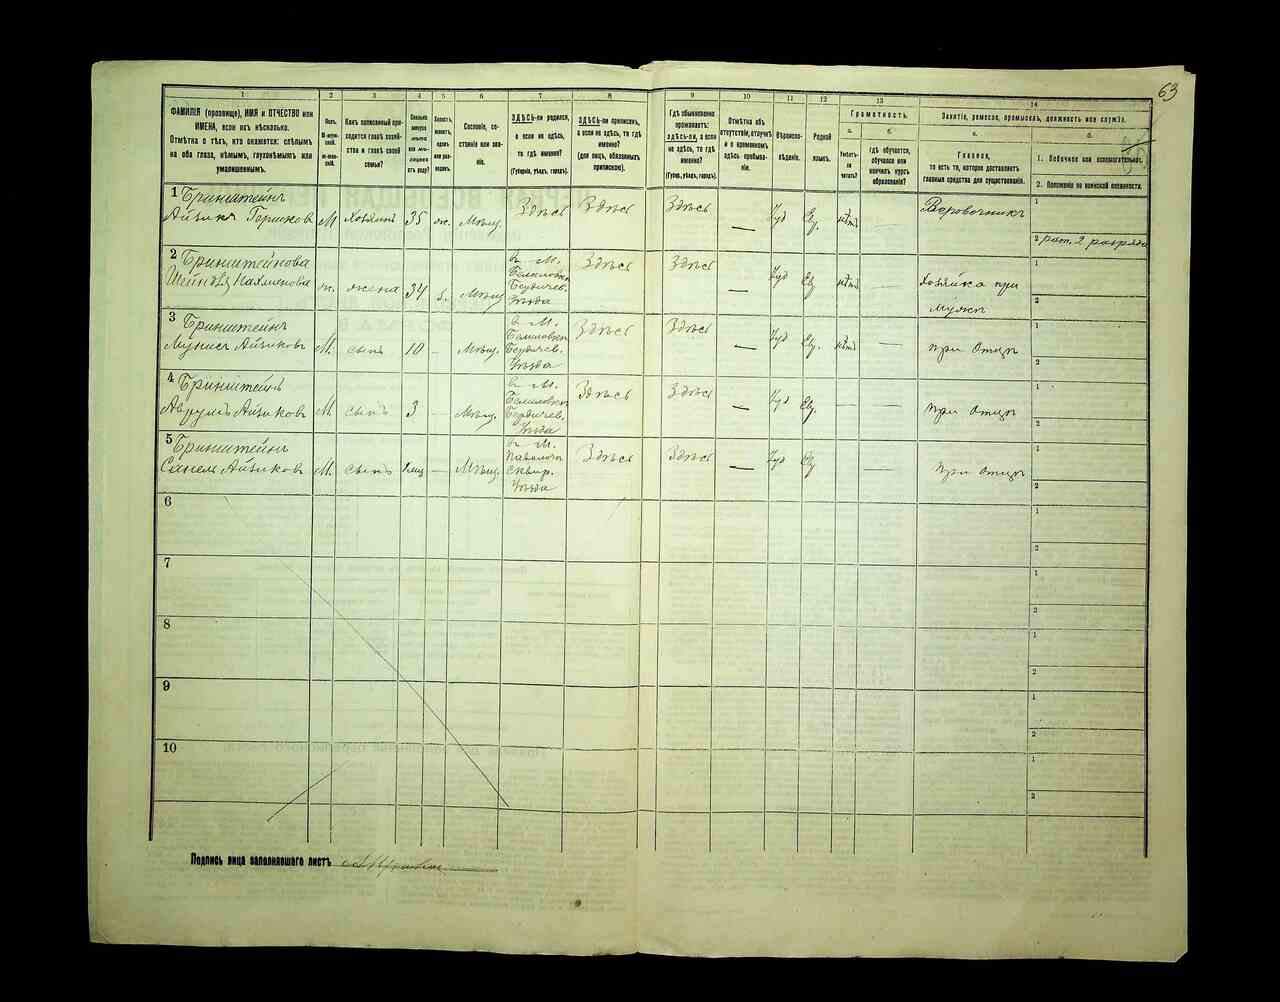 63
1 2 3 4 5 6 7 8 9 10 11 12 13 14
ФАМИЛІЯ (прозвище), ИМЯ и ОТЧЕСТВО или
ИМЕНА, если ихъ нѣсколько.
Отмѣтка о тѣхъ, кто окажется: слѣпымъ
на оба глаза, нѣмымъ, глухонѣмымъ или
умалишеннымъ.
Полъ.
Какъ записанный при-
ходится главѣ хозяй-
ства и главѣ своей
семьи?
Сколько
минуло
лѣтъ
или мѣ-
сяцевъ
отъ роду?
Сословіе, со-
стояніе или зва-
ніе.
ЗДѢСЬ-ли родился,
а если не здѣсь,
то гдѣ именно?
(Губернія, уѣздъ, городъ).
ЗДѢСЬ-ли приписанъ,
а если не здѣсь, то гдѣ
именно?
(для лицъ, обязанныхъ
припискою).
Гдѣ обыкновенно
проживаетъ:
здѣсь-ли, а если
не здѣсь, то гдѣ
именно?
(Губерн., уѣздъ, городъ).
Отмѣтка объ
отсутствіи, отлучкѣ
и о временномъ
здѣсь пребыва-
ніи.
Вѣроиспо-
вѣданіе.
Родной
языкъ.
Грамотность.
а.
Умѣетъ-
ли
читать?
б.
гдѣ обучается,
обучался или
кончилъ курсъ
образованія?
Занятіе, ремесло, промыселъ, должность или служба.
а.
Главное,
то есть то, которое доставляетъ
главныя средства для существованія.
б.
1. Побочное или вспомогательное.
2. Положеніе по воинской повинности.
1 Бринштейнъ
Айзикъ Гершковъ М хозяинъ 35 ж. Мѣщ. Здѣсь Здѣсь Здѣсь — Іуд Ев. нѣтъ Веровочникъ
1
2 рат. 2 разряда
2 Бринштейнова
Шейндля Нахмановна ж. жена 34 з. Мѣщ в М. Бердичев. Уѣзда Здѣсь Здѣсь — Іуд Ев нѣтъ — Хозяйка при мужѣ
1
2
3 Бринштейнъ
Айзиковъ М. сынъ 10 — Мѣщ. в М. Бердичев. Уѣзда Здѣсь Здѣсь — Іуд Ев. нѣтъ — при Отцѣ
1
2
4 Бринштейнъ
Аврумъ Айзиковъ М сынъ 3 — Мѣщ. в М. Бердичев. Уѣзда Здѣсь Здѣсь — Іуд Ев. — — при Отцѣ
1
2
5 Бринштейнъ
Айзиковъ М. сынъ — Мѣщ. в М. Паволочи Сквир. Уѣзда Здѣсь Здѣсь — Іуд Ев — — при Отцѣ
1
2
6
1
2
7
1
2
8
1
2
9
1
2
10
1
2
Подпись лица заполнявшаго листъ